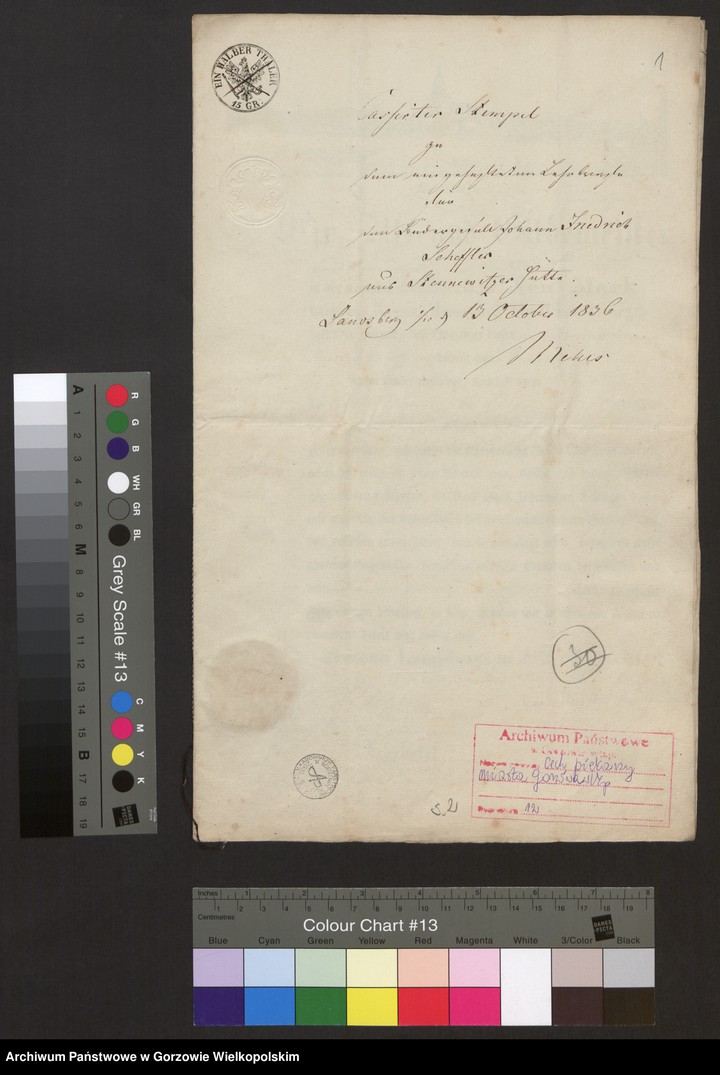 EIN HALBER THALER
15 GR.
1
Cassirter Stempel
zu
dem
für
den Johann Friedrich
Scheffler
aus Stennewitzer Hütte.
Landsberg a/W d 13 October 1836
30
Archiwum Państwowe
cech piekarzy
miasta Gorzowa Wlkp
12
s. 2
A 1 2 3 4 5 6 M 8 9 10 11 12 13 14 15 B 17 18 19
R G B WH GR BL
Grey Scale #13
C M Y K
DANES
PICTA
Inches 1 2 3 4 5 6 7 8
Centimetres 1 2 3 4 5 6 7 8 9 10 11 12 13 14 15 16 17 18 19
Colour Chart #13
DANES
PICTA
Blue Cyan Green Yellow Red Magenta White 3/Color Black
Archiwum Państwowe w Gorzowie Wielkopolskim